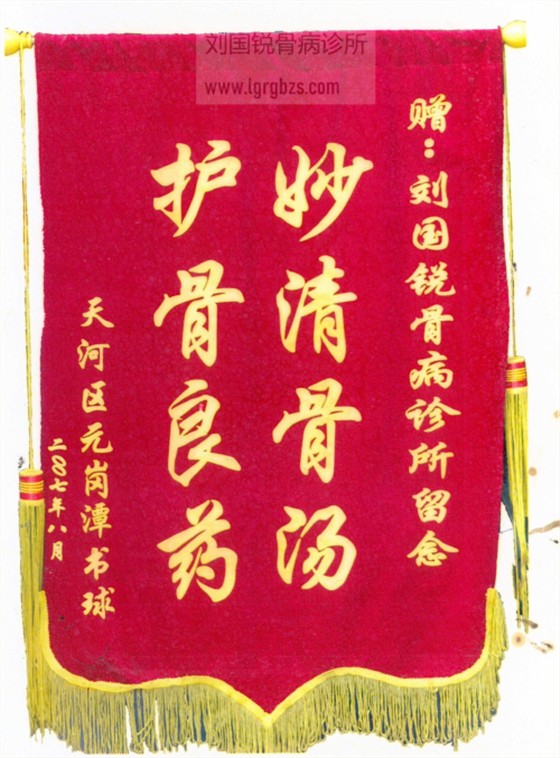 刘国锐骨病诊所
www.lgrgbzs.com
赠：刘国锐骨病诊所留念
妙清骨汤
护骨良药
天河区元岗潭书球
二00七年八月